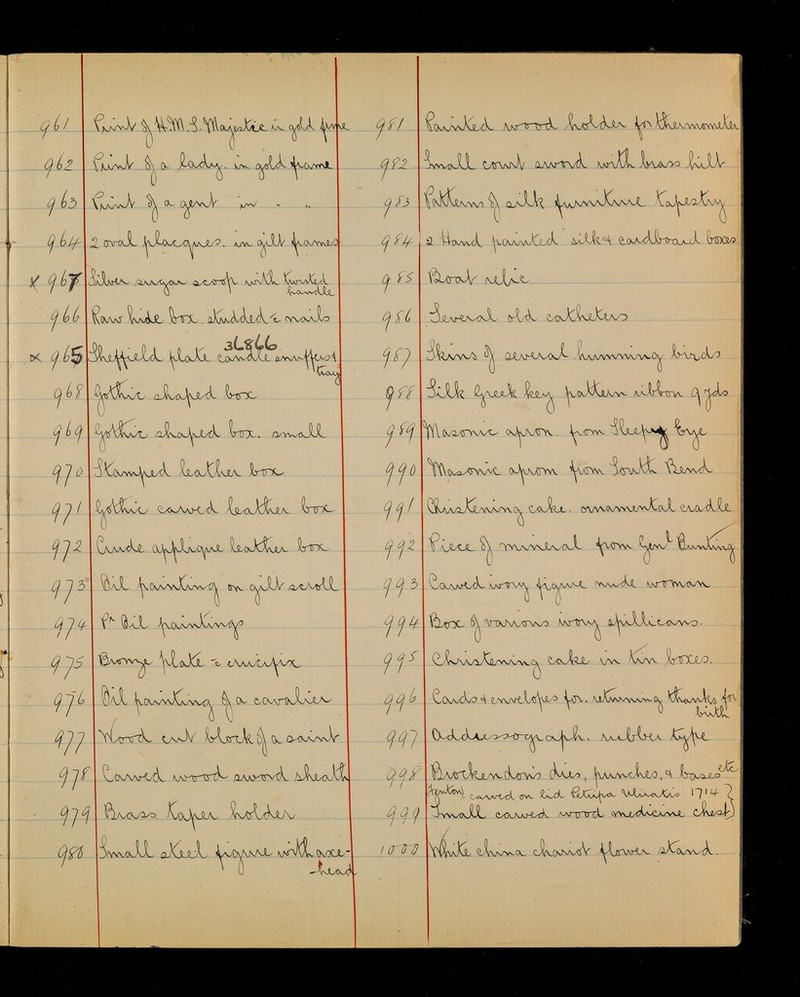 961 Print of H.M.S. Majestic in gold frme
962 Print of a lady. in gold frame
963 Print of a gent in - "
964 2 oval placques. in gilt frames
x 967 Silver sugar scoop with twisted
handle
966 Raw hide box. studded c̄ nails
36866
x 965 Sheffield plate candle snuffers &
tray
968 Gothic shaped box
969 Gothic shaped box. small
970 Stamped leather box
971 Gothic carved leather box
972 Crude applique leather box
973 Oil painting on gilt scroll
974 Pr Oil paintings
975 Bronze plate c̄ crucifix
976 Oil painting of a cavalier
977 Wood cut block of a saint
978 Carved wood sword sheath
979 Brass taper holder
980 Small steel figure with axe-
-head
981 Painted wood holder for thermometer
982 Small court sword with brass hilt
983 Patterns of silk furniture tapestry
984 2 Hand painted silk & cardboard boxes
985 Boat relic
986 Several old catheters
987 Skins of several humming birds
988 Silk Greek key pattern ribbon 9 yds
989 Masonic apron from Sleepy Eye
990 Masonic apron from South Bend
991 Christening cake. ornamental cradle
992 Piece of mineral from Genl Bunting
993 Carved ivory figure nude woman
994 Box of various ivory spillicans.
995 Christening cake in tin boxes.
996 Cards & envelopes for. returning thanks for
birth
997 Addressograph. rubber type
998 Brockendon's dies, punches, & bases etc
carved on lid 1714
999 Small carved wood medicine chest)
1000 White china chariot flower stand.